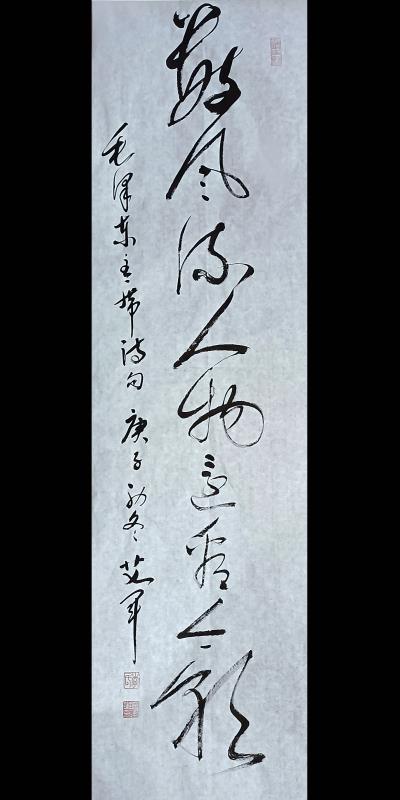 數风流人物还看今朝
毛泽东主席诗句 庚子初冬 艾军